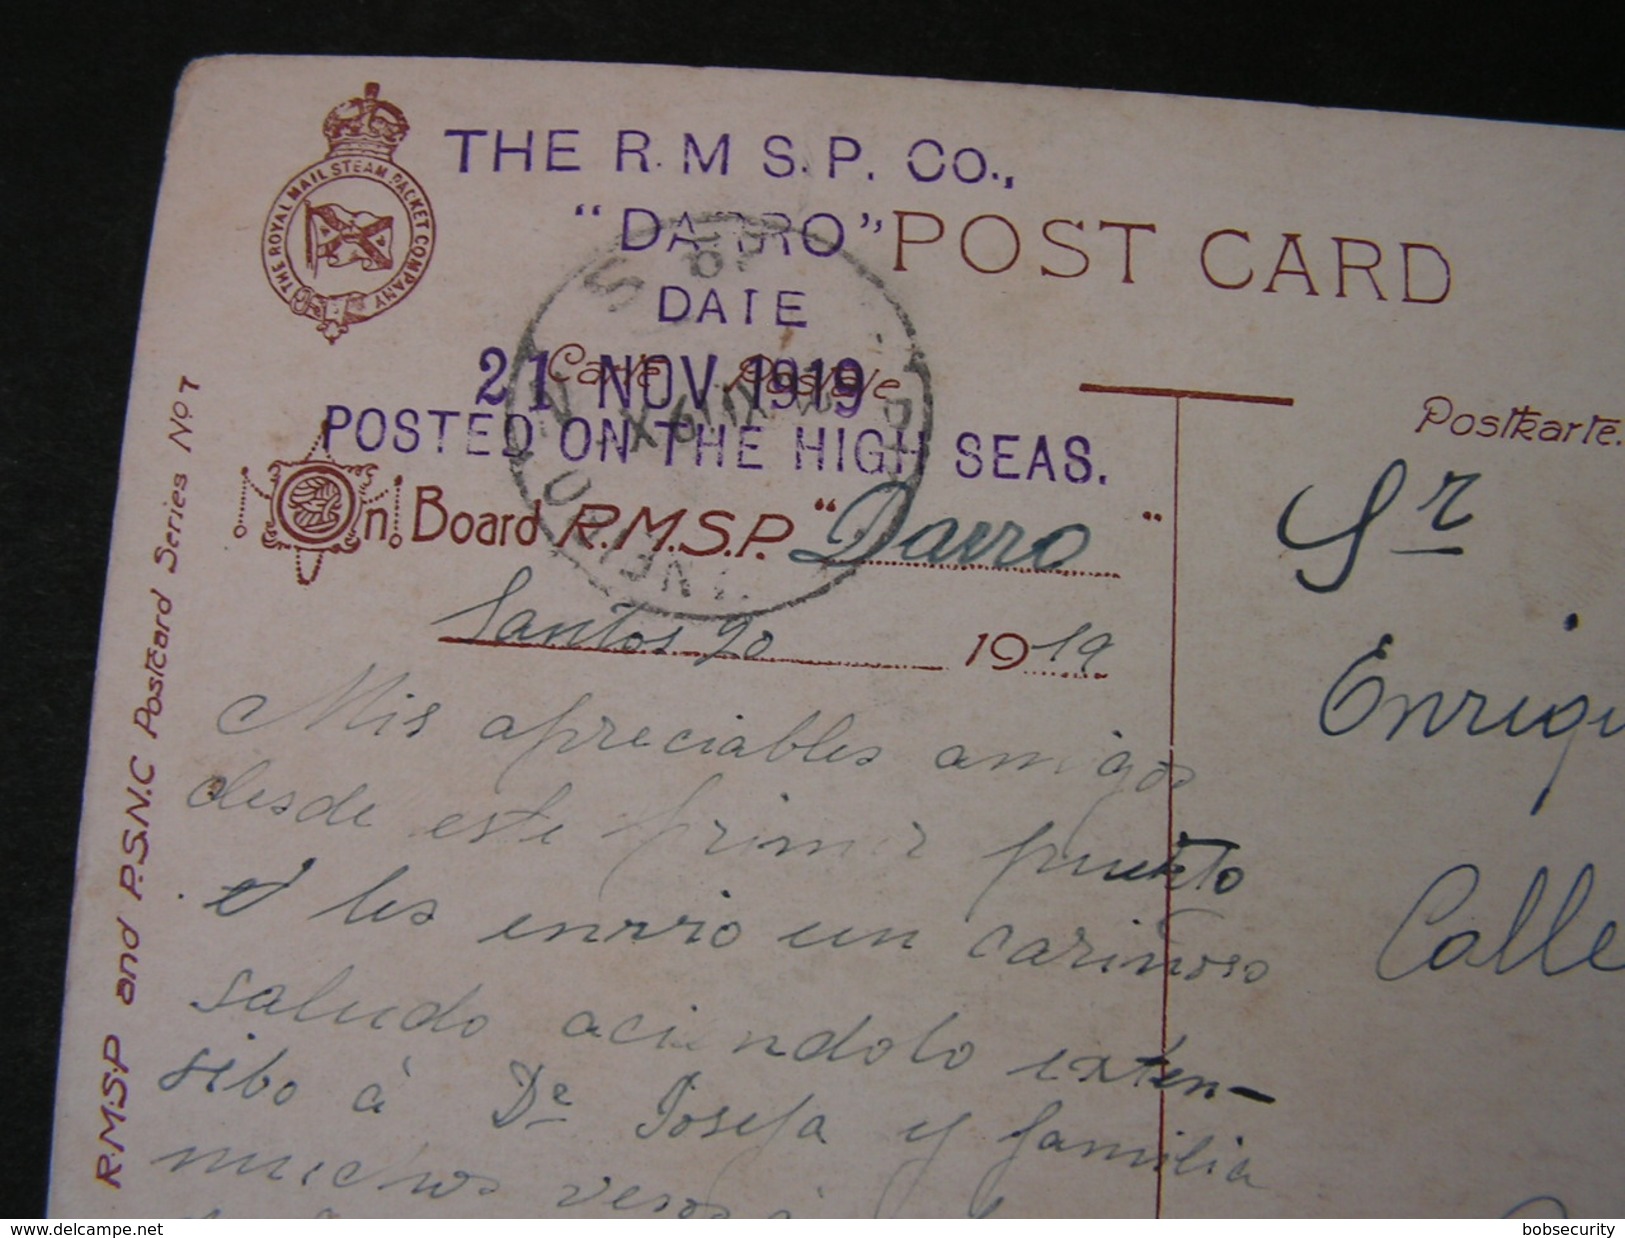 THE ROYAL MAIL STEAM PACKET COMPANY
THE R.M.S.P. Co.,
"DARRO"
DATE
21 NOV. 1919
POSTED ON THE HIGH SEAS.
POST CARD
Carte Postale
Postkarte.
On Board R.M.S.P. "Darro"
Santos 20 1919
Mis apreciables amigos
desde este primer puerto
les envio un cariñoso
saludo aciendolo exten-
sibo à Dª Josefa y familia
muchos vesos à
Sr
Enriqu
Calle
R.M.S.P and P.S.N.C Postcard Series No 7
delcampe.net
bobsecurity